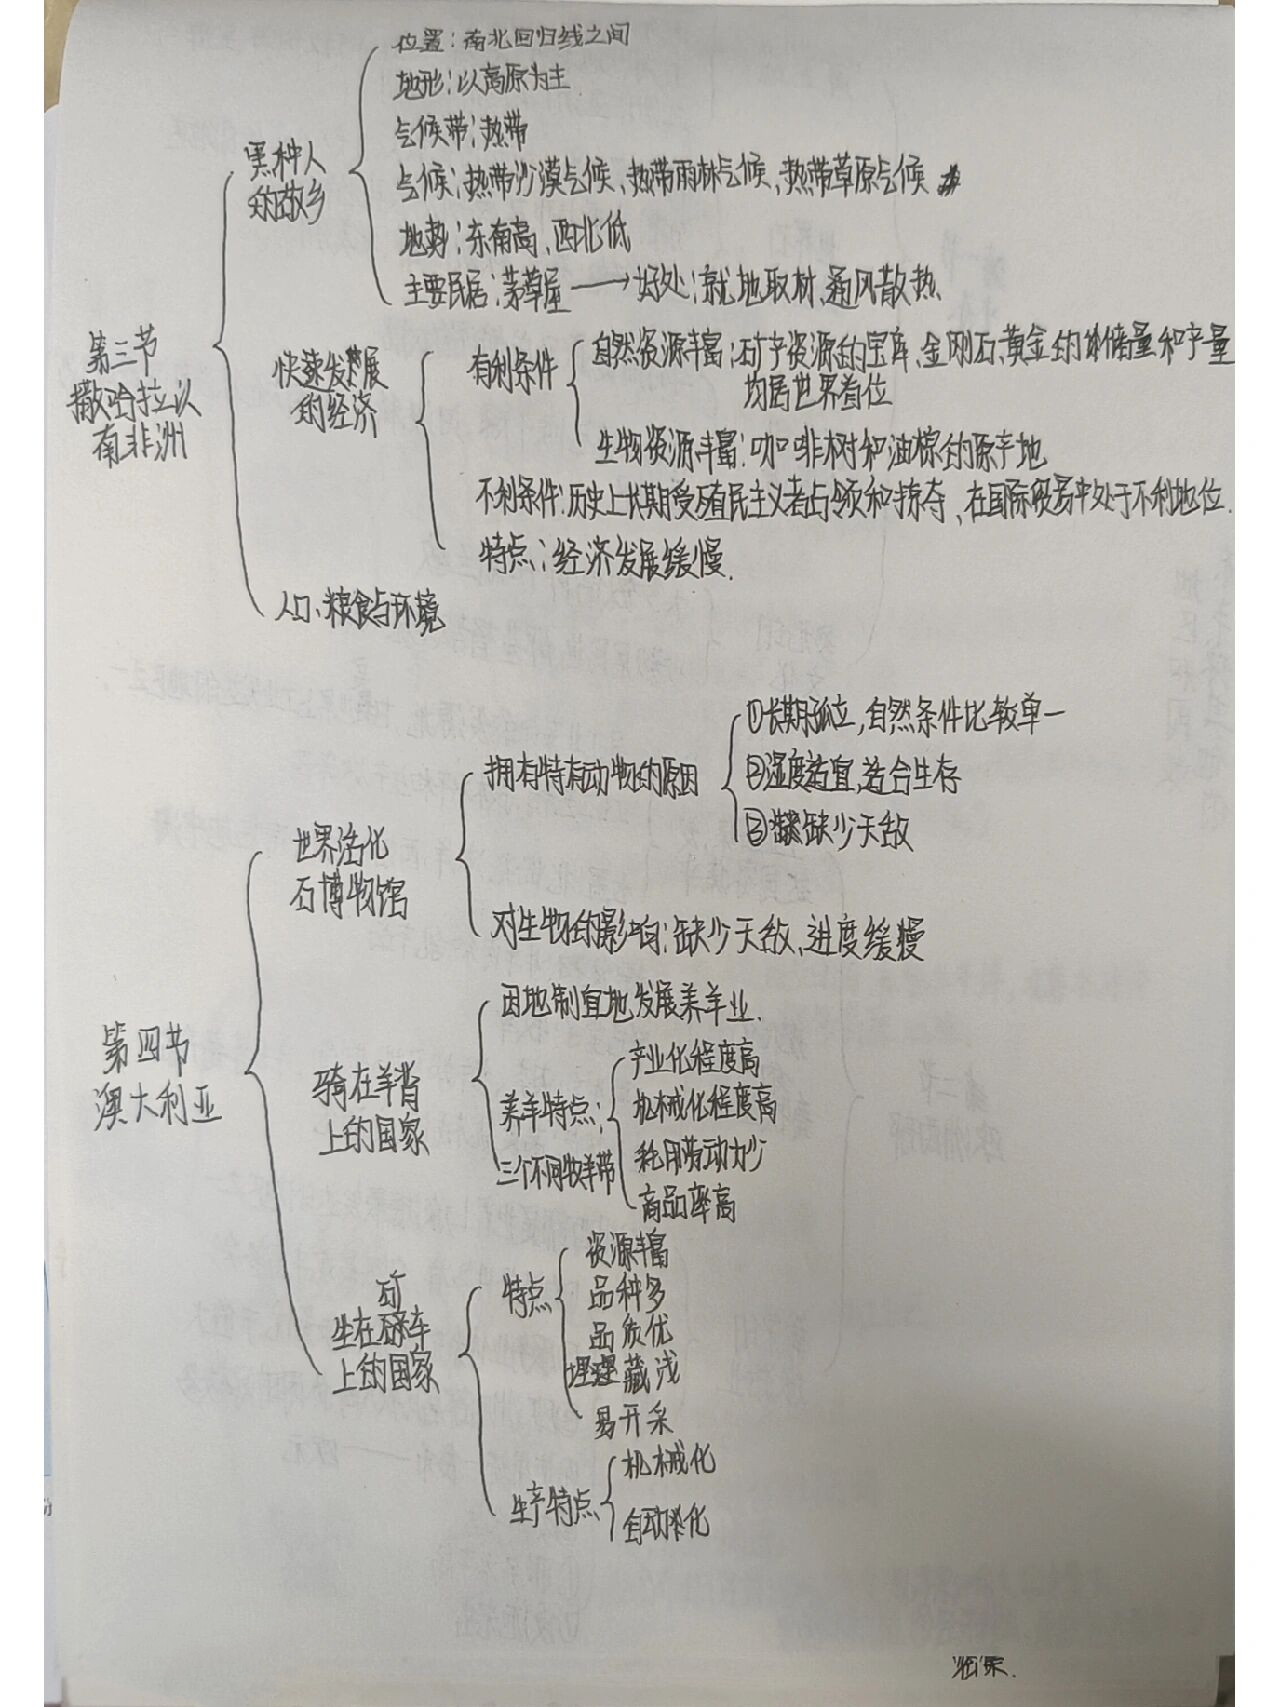 位置:南北回归线之间
地形:以高原为主
气候带:热带
黑种人
的故乡
气候:热带沙漠气候、热带雨林气候、热带草原气候
地势:东南高、西北低
主要民居:茅草屋 → 好处:就地取材、通风散热
第三节
撒哈拉以
南非洲
快速发展
的经济
有利条件
自然资源丰富:矿产资源的宝库、金刚石、黄金的储量和产量
均居世界首位
生物资源丰富:咖啡树和油棕的原产地
不利条件:历史上长期受殖民主义者占领和掠夺、在国际贸易中处于不利地位.
特点:经济发展缓慢.
人口、粮食与环境
第四节
澳大利亚
世界活化
石博物馆
拥有特有动物的原因
①长期孤立,自然条件比较单一
②湿度适宜,适合生存
③缺少天敌
对生物的影响:缺少天敌、进度缓慢
骑在羊背
上的国家
因地制宜地发展养羊业.
养羊特点:
产业化程度高
机械化程度高
利用劳动力少
商品率高
三个不同牧羊带
矿
坐在车
上的国家
特点
资源丰富
品种多
品质优
埋藏浅
易开采
生产特点
机械化
自动化